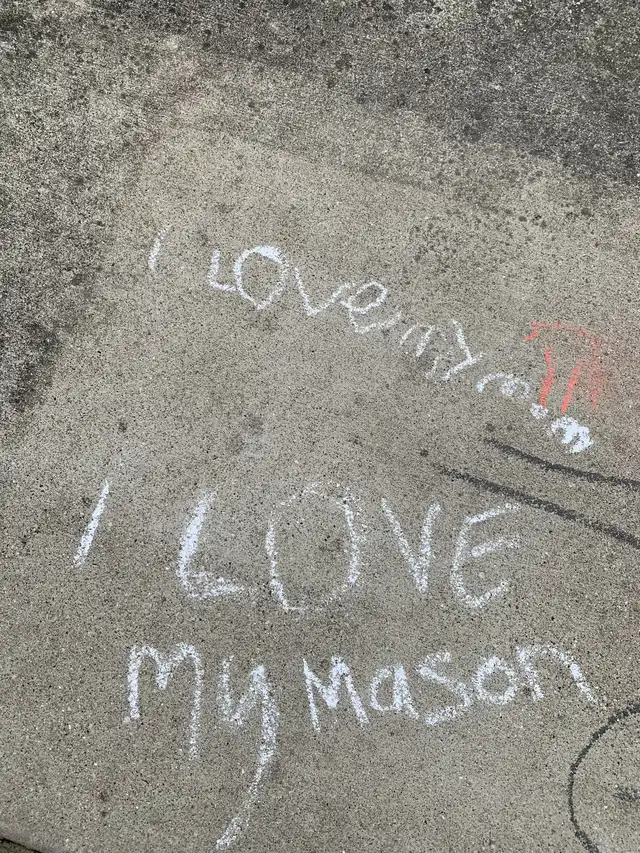 I LOVe my mom
I LOVE
My Mason